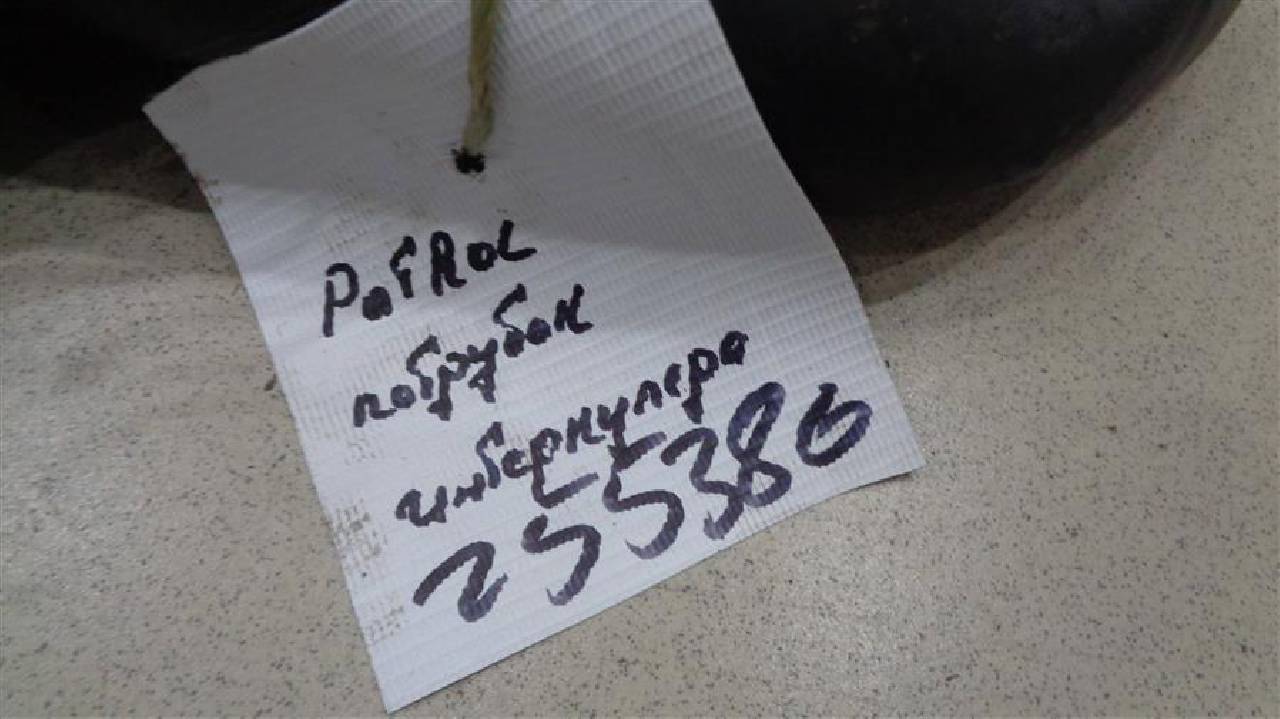 Patrol
патрубок
интеркулера
255386